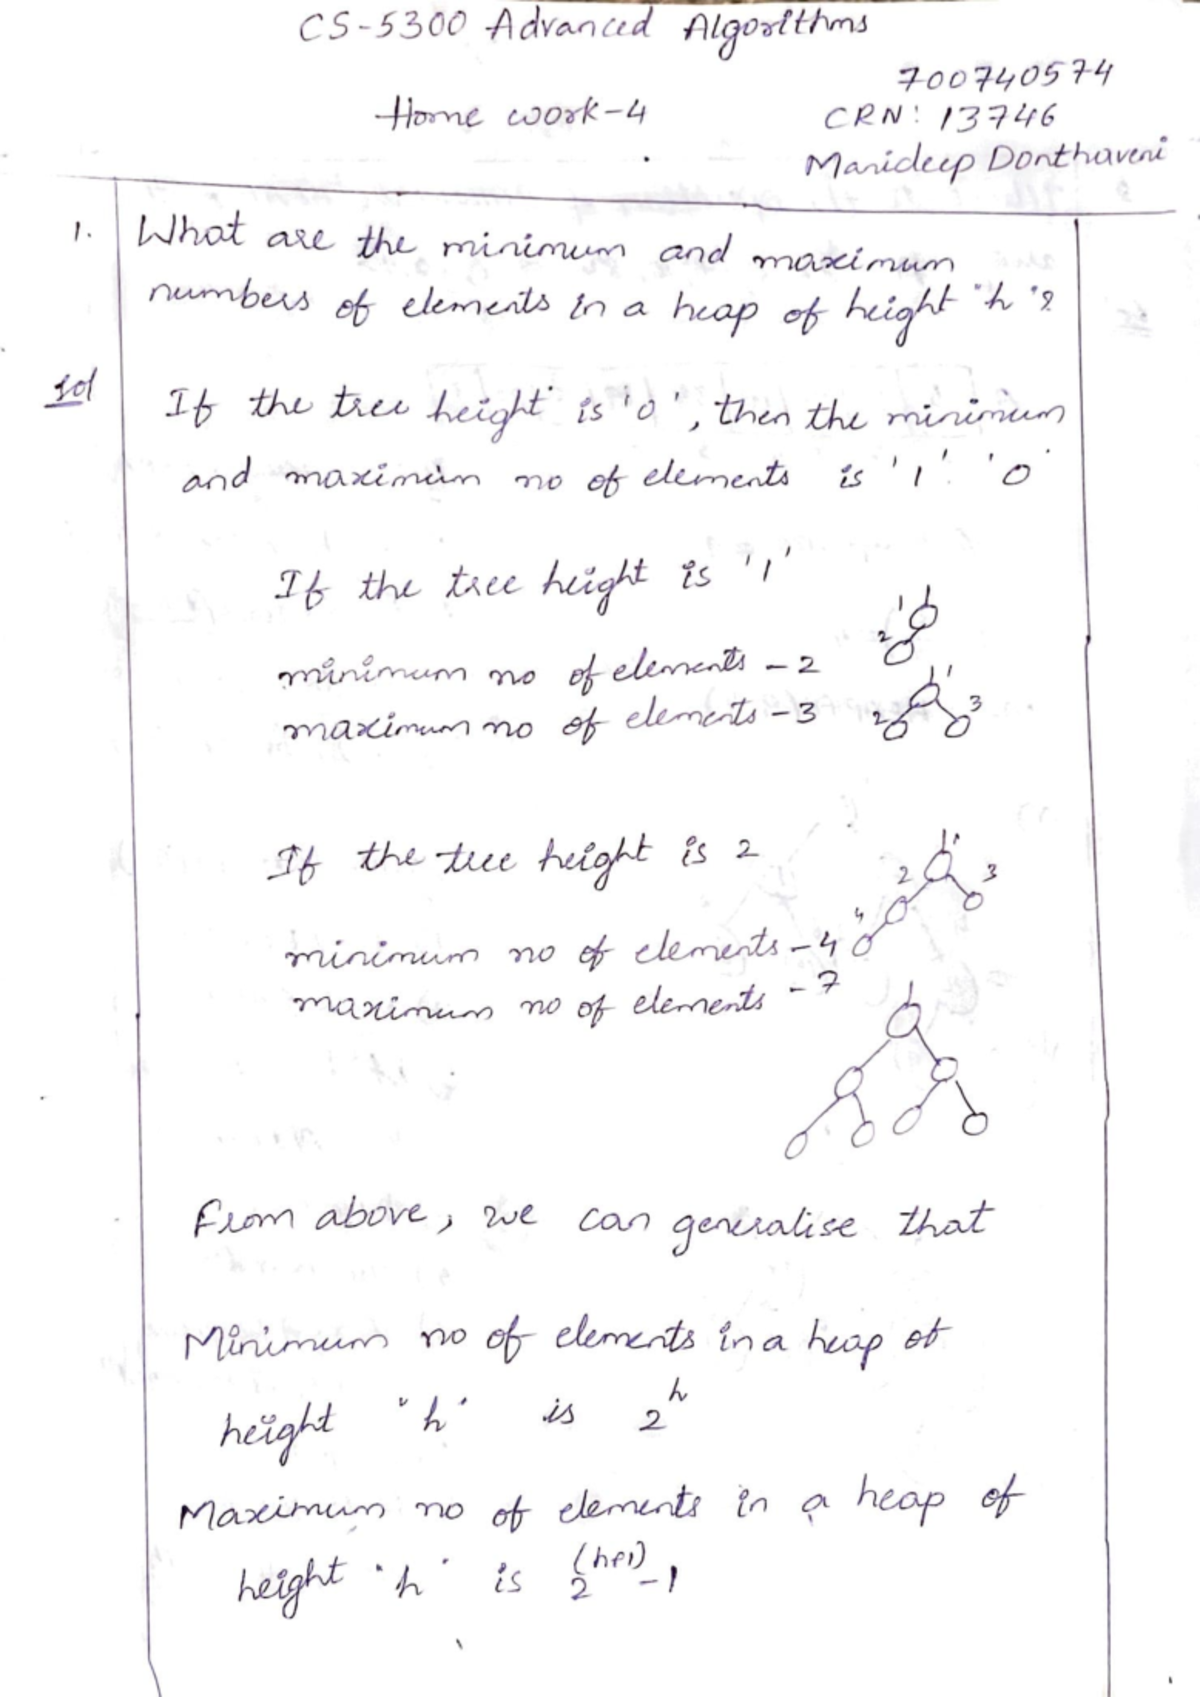 CS-5300 Advanced Algorithms
700740574
Home work-4
CRN: 13746
Manideep Donthaveni
1. What are the minimum and maximum
numbers of elements in a heap of height 'h'?
Sol
If the tree height is '0', then the minimum
and maximum no of elements is '1' '0'
If the tree height is '1'
1
2
minimum no of elements - 2
1
maximum no of elements - 3
2 3
If the tree height is 2
1
2 3
4
minimum no of elements - 4
maximum no of elements - 7
From above, we can generalise that
Minimum no of elements in a heap of
height "h" is 2^h
Maximum no of elements in a heap of
height "h" is 2^(h+1) - 1